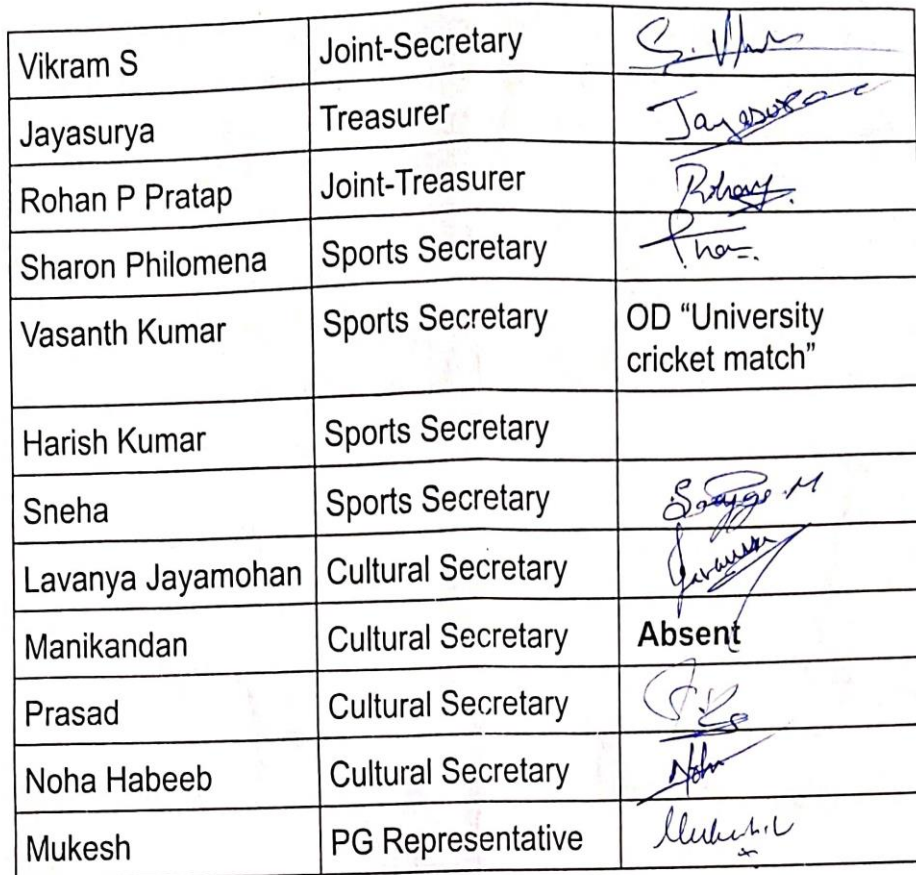 Vikram S Joint-Secretary
Jayasurya Treasurer Jayasurya
Rohan P Pratap Joint-Treasurer
Sharon Philomena Sports Secretary
Vasanth Kumar Sports Secretary OD “University
cricket match”
Harish Kumar Sports Secretary
Sneha Sports Secretary
Lavanya Jayamohan Cultural Secretary
Manikandan Cultural Secretary Absent
Prasad Cultural Secretary
Noha Habeeb Cultural Secretary
Mukesh PG Representative